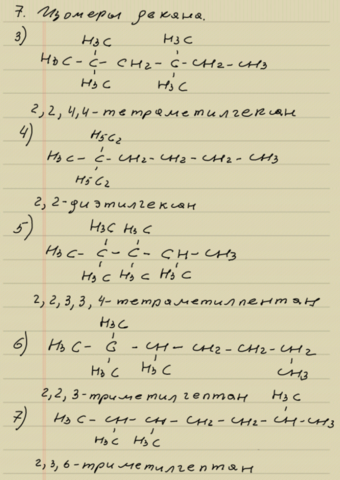 7. Изомеры декана.
3)
H3C H3C
H3C - C - CH2 - C - CH2 - CH3
H3C H3C
2, 2, 4, 4 - тетраметилгексан
4)
H5C2
H3C - C - CH2 - CH2 - CH2 - CH3
H5C2
2, 2 - диэтилгексан
5)
H3C H3C
H3C - C - C - CH - CH3
H3C H3C H3C
2, 2, 3, 3, 4 - тетраметилпентан
6)
H3C
H3C - C - CH - CH2 - CH2 - CH2
H3C H3C CH3
2, 2, 3 - триметилгептан
7)
H3C
H3C - CH - CH - CH2 - CH2 - CH - CH3
H3C H3C
2, 3, 6 - триметилгептан